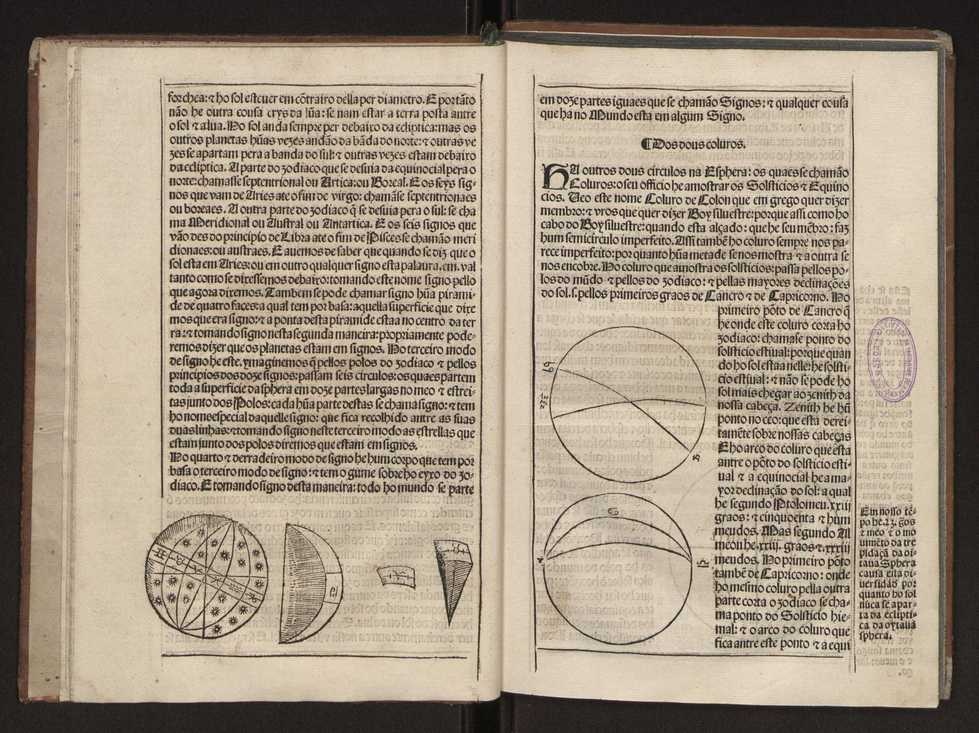 for chea: ⁊ ho sol esteuer em cõtrairo della per diametro. E portãto
não he outra cousa crys da lũa: se nam estar a terra posta antre
o sol ⁊ a lua. No sol anda sempre per debaixo da ecliptica: mas os
outros planetas hũas vezes andão da bãda do norte: ⁊ outras ve
zes se apartam pera a banda do sul: ⁊ outras vezes estam debaixo
da ecliptica. A parte do zodiaco que se desuia da equinocial pera o
norte: chamasse septentrional ou Artica: ou Boreal. E os seys sig-
nos que vam de Aries ate o fim de virgo: chamãse septentrionaes
ou boreaes. A outra parte do zodiaco q̃ se desuia pera o sul: se cha
ma Meridional ou Austral ou Antartica. E os seis signos que
vão des do principio de Libra ate o fim de Pisces se chamão meri
dionaes: ou austraes. E auemos de saber que quando se diz que o
sol esta em Aries: ou em outro qualquer signo esta palaura, em, val
tanto como se dissessemos debaixo: tomando este nome signo pello
que agora diremos. Tambem se pode chamar signo hũa pirami-
de de quatro faces: a qual tem por basa: aquella superficie que dire
mos que era signo: ⁊ a ponta desta piramide estaa no centro da ter
ra: ⁊ tomando signo nesta segunda maneira: propriamente pode-
remos dizer que os planetas estam em signos. No terceiro modo
de signo he este. ymaginemos q̃ pellos polos do zodiaco ⁊ pellos
principios dos doze signos: passam seis circulos: os quaes partem
toda a superficie da sphera em doze partes largas no meo ⁊ estrei-
tas junto dos Polos: cada hũa parte destas se chama signo: ⁊ tem
ho nome especial daquelle signo: que fica recolhido antre as suas
duas linhas: ⁊ tomando signo neste terceiro modo as estrellas que
estam junto dos polos diremos que estam em signos.
No quarto ⁊ derradeiro modo de signo he hum corpo que tem por
basa o terceiro modo de signo: ⁊ tem o gume sobre ho eyxo do zo-
diaco. E tomando signo desta maneira: todo ho mundo se parte
em doze partes iguaes que se chamão Signos: ⁊ qualquer cousa
que ha no Mundo esta em algum Signo.
¶ Dos dous coluros.
HA outros dous circulos na Esphera: os quaes se chamão
Coluros: o seu officio he amostrar os Solsticios ⁊ Equino
cios. Ueo este nome Coluro de Colon que em grego quer dizer
membro: ⁊ vros que quer dizer Boy siluestre: porque assi como ho
cabo do Boy siluestre: quando esta alçado: que he seu mẽbro: faz
hum semicirculo imperfeito. Assi tambẽ ho coluro sempre nos pa-
rece imperfeito: por quanto hũa metade se nos mostra ⁊ a outra se
nos encobre. No coluro que amostra os solsticios: passa pellos po-
los do mũdo ⁊ pellos do zodiaco: ⁊ pellas mayores declinações
do sol. s. pellos primeiros graos de Cancro ⁊ de Capricorno. No
primeiro põto de Cancro q̃
he onde este coluro corta ho
zodiaco: chamase ponto do
solsticio estiual: porque quan
do ho sol estaa nelle: he solsti-
cio estiual: ⁊ não se pode ho
sol mais chegar ao zenith da
nossa cabeça. Zenith he hũ
ponto no ceo: que esta derei-
tamẽte sobre nossas cabeças
E ho arco do coluro que esta
antre o põto do solsticio esti-
ual ⁊ a equinocial he a ma-
yor declinação do sol: a qual
he segundo Ptolomeu. xxiij
graos: ⁊ cinquoenta ⁊ hum
meudos. Mas segundo Al
meon he. xxiij. graos ⁊. xxxiij
meudos. No primeiro põto
tambẽ de Capricorno: onde
ho mesmo coluro pella outra
parte corta o zodiaco se cha-
ma ponto do Solsticio hie-
mal: ⁊ o arco do coluro que
fica antre este ponto ⁊ a equi
Em nosso tẽ-
po he. 23. gos
⁊ meo ⁊ o mo
uimẽto da tre
pidaçã da oi-
taua Sphera
causa esta di-
uersidade por
quanto ho sol
nũca se apar-
ta da eclipti-
ca da oytaua
sphera.